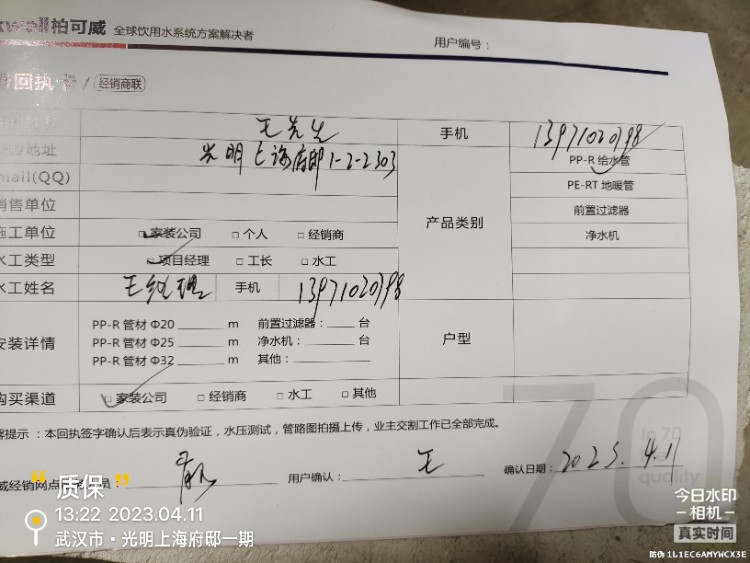 kwell柏可威 全球饮用水系统方案解决者
用户编号：
回执卡 / 经销商联
王先生 手机 13971020798
地址 光明上海府邸1-2-2303 PP-R 给水管
mail(QQ) PE-RT 地暖管
销售单位 产品类别 前置过滤器
施工单位 □ 家装公司 □ 个人 □ 经销商 净水机
水工类型 □ 项目经理 □ 工长 □ 水工
水工姓名 王经理 手机 13971020798
安装详情 PP-R 管材 Φ20 ______ m 前置过滤器：____ 台 户型
PP-R 管材 Φ25 ______ m 净水机：____ 台
PP-R 管材 Φ32 ______ m 其他：____
购买渠道 □ 家装公司 □ 经销商 □ 水工 □ 其他
提示：本回执签字确认后表示真伪验证，水压测试，管路图拍摄上传，业主交割工作已全部完成。
威经销网点 员： 用户确认： 王 确认日期： 2023.4.11
70
In 70
quality
质保
13:22 2023.04.11
武汉市·光明上海府邸一期
今日水印
相机
真实时间
防伪 1L1EC6AMYWCX3E